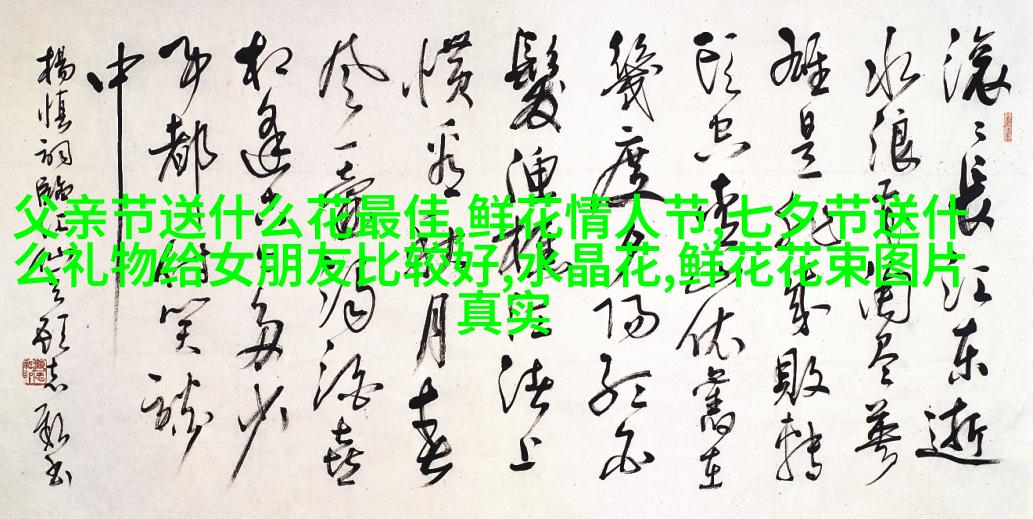 父亲节送什么花最佳,鲜花情人节,七夕节送什
么礼物给女朋友比较好,水晶花,鲜花花束图片
真实
滚〻長江東逝
水浪花淘尽英
雄是非成敗轉
头空青山依舊在
幾度夕陽红白
髮渔樵江渚上
惯看秋月春
风一壶浊酒喜
相逢古今多少
事都付笑谈
中
楊慎词臨江仙